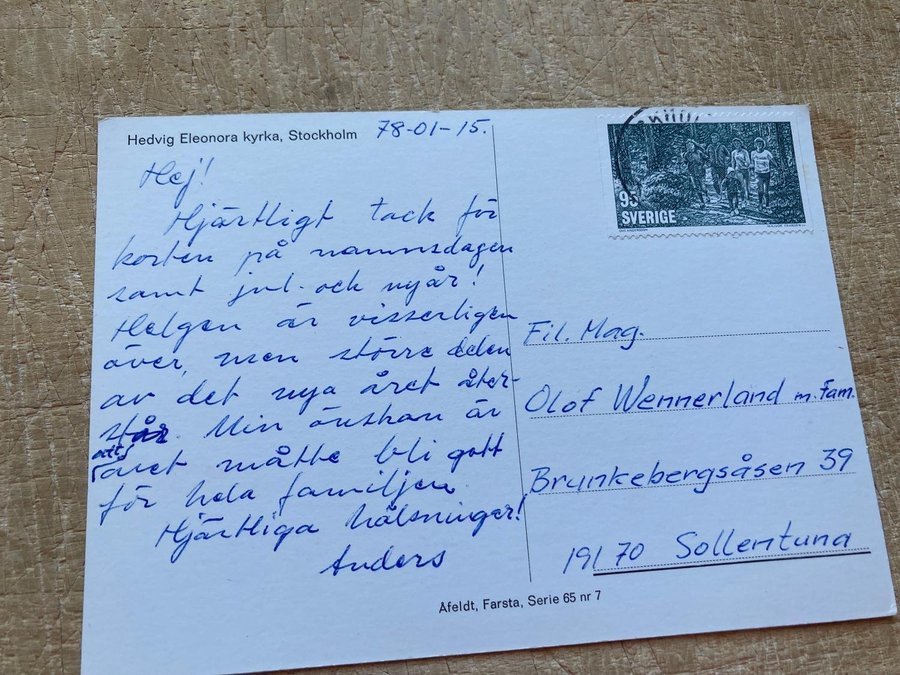 Hedvig Eleonora kyrka, Stockholm 78-01-15.
Hej!
Hjärtligt tack för
korten på namnsdagen
samt jul- och nyår!
Helgen är visserligen
över, men större delen
av det nya året åter-
står. Min önskan är
att
året måtte bli gott
för hela familjen
Hjärtliga hälsningar!
Anders
SVERIGE
Fil. Mag.
Olof Wennerland m. Fam.
Brunkebergsåsen 39
191 70 Sollentuna
Åfeldt, Farsta, Serie 65 nr 7